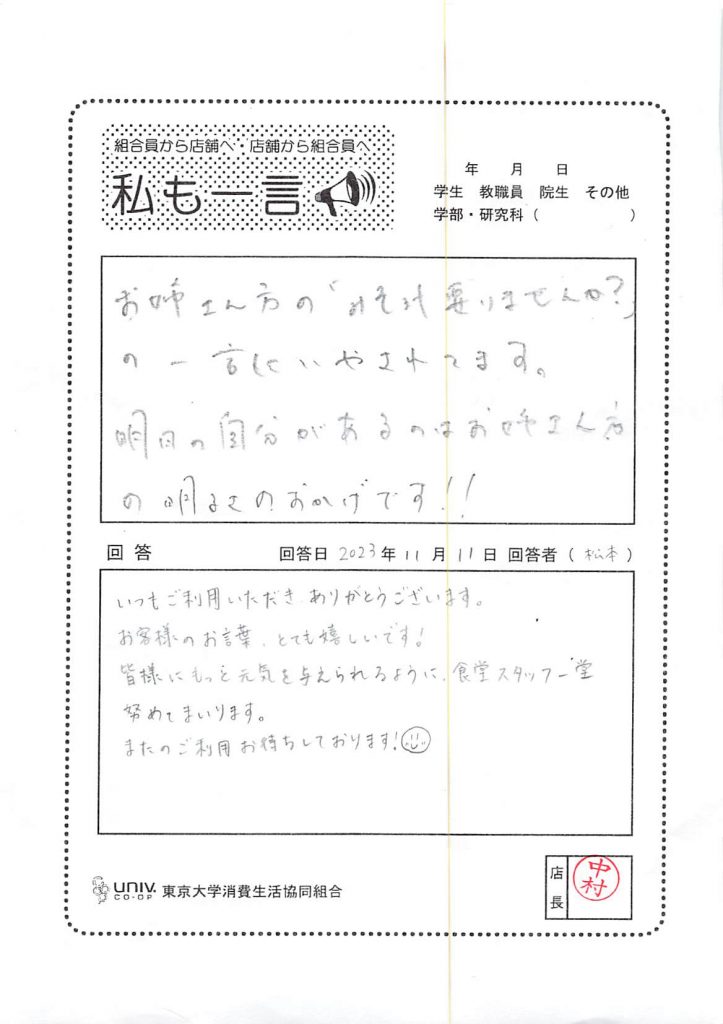 組合員から店舗へ・店舗から組合員へ
私も一言
年 月 日
学生 教職員 院生 その他
学部・研究科（ ）
お姉さん方の「みそ汁要りませんか？」
の一言にいやされてます。
明日の自分があるのはお姉さん方
の明るさのおかげです!!
回答 回答日 2023年 11月 11日 回答者（松本）
いつもご利用いただき、ありがとうございます。
お客様のお言葉、とても嬉しいです!
皆様にもっと元気を与えられるように、食堂スタッフ一堂
努めてまいります。
またのご利用お待ちしております!
UNIV.
CO-OP
東京大学消費生活協同組合
店長
中村